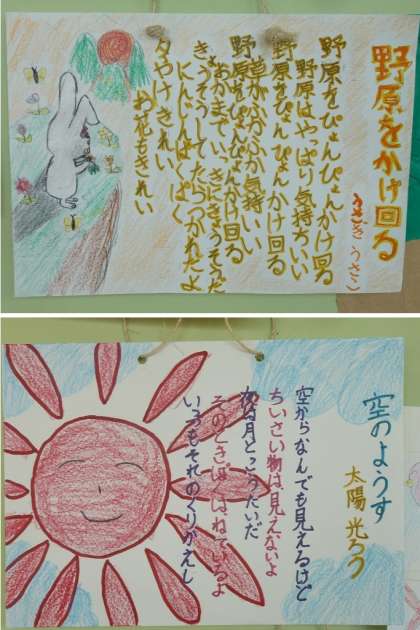 野原をかけ回る
うさぎ うさこ
野原をぴょんぴょんかけ回る
野原はやっぱり気持ちいい
野原をぴょんぴょんかけ回る
草がふかふか気持いい
野原をぴょんぴょんかけ回る
おかまでいっきにきょうそうだ
きょうそうしてたらつかれたよ
にんじんぱくぱく
夕やけきれい
お花もきれい
空のようす
太陽 光ろう
空からなんでも見えるけど
ちいさい物は、見えないよ
夜は月とこうたいだ
そのときぼくはねているよ
いつもそれのくりかえし